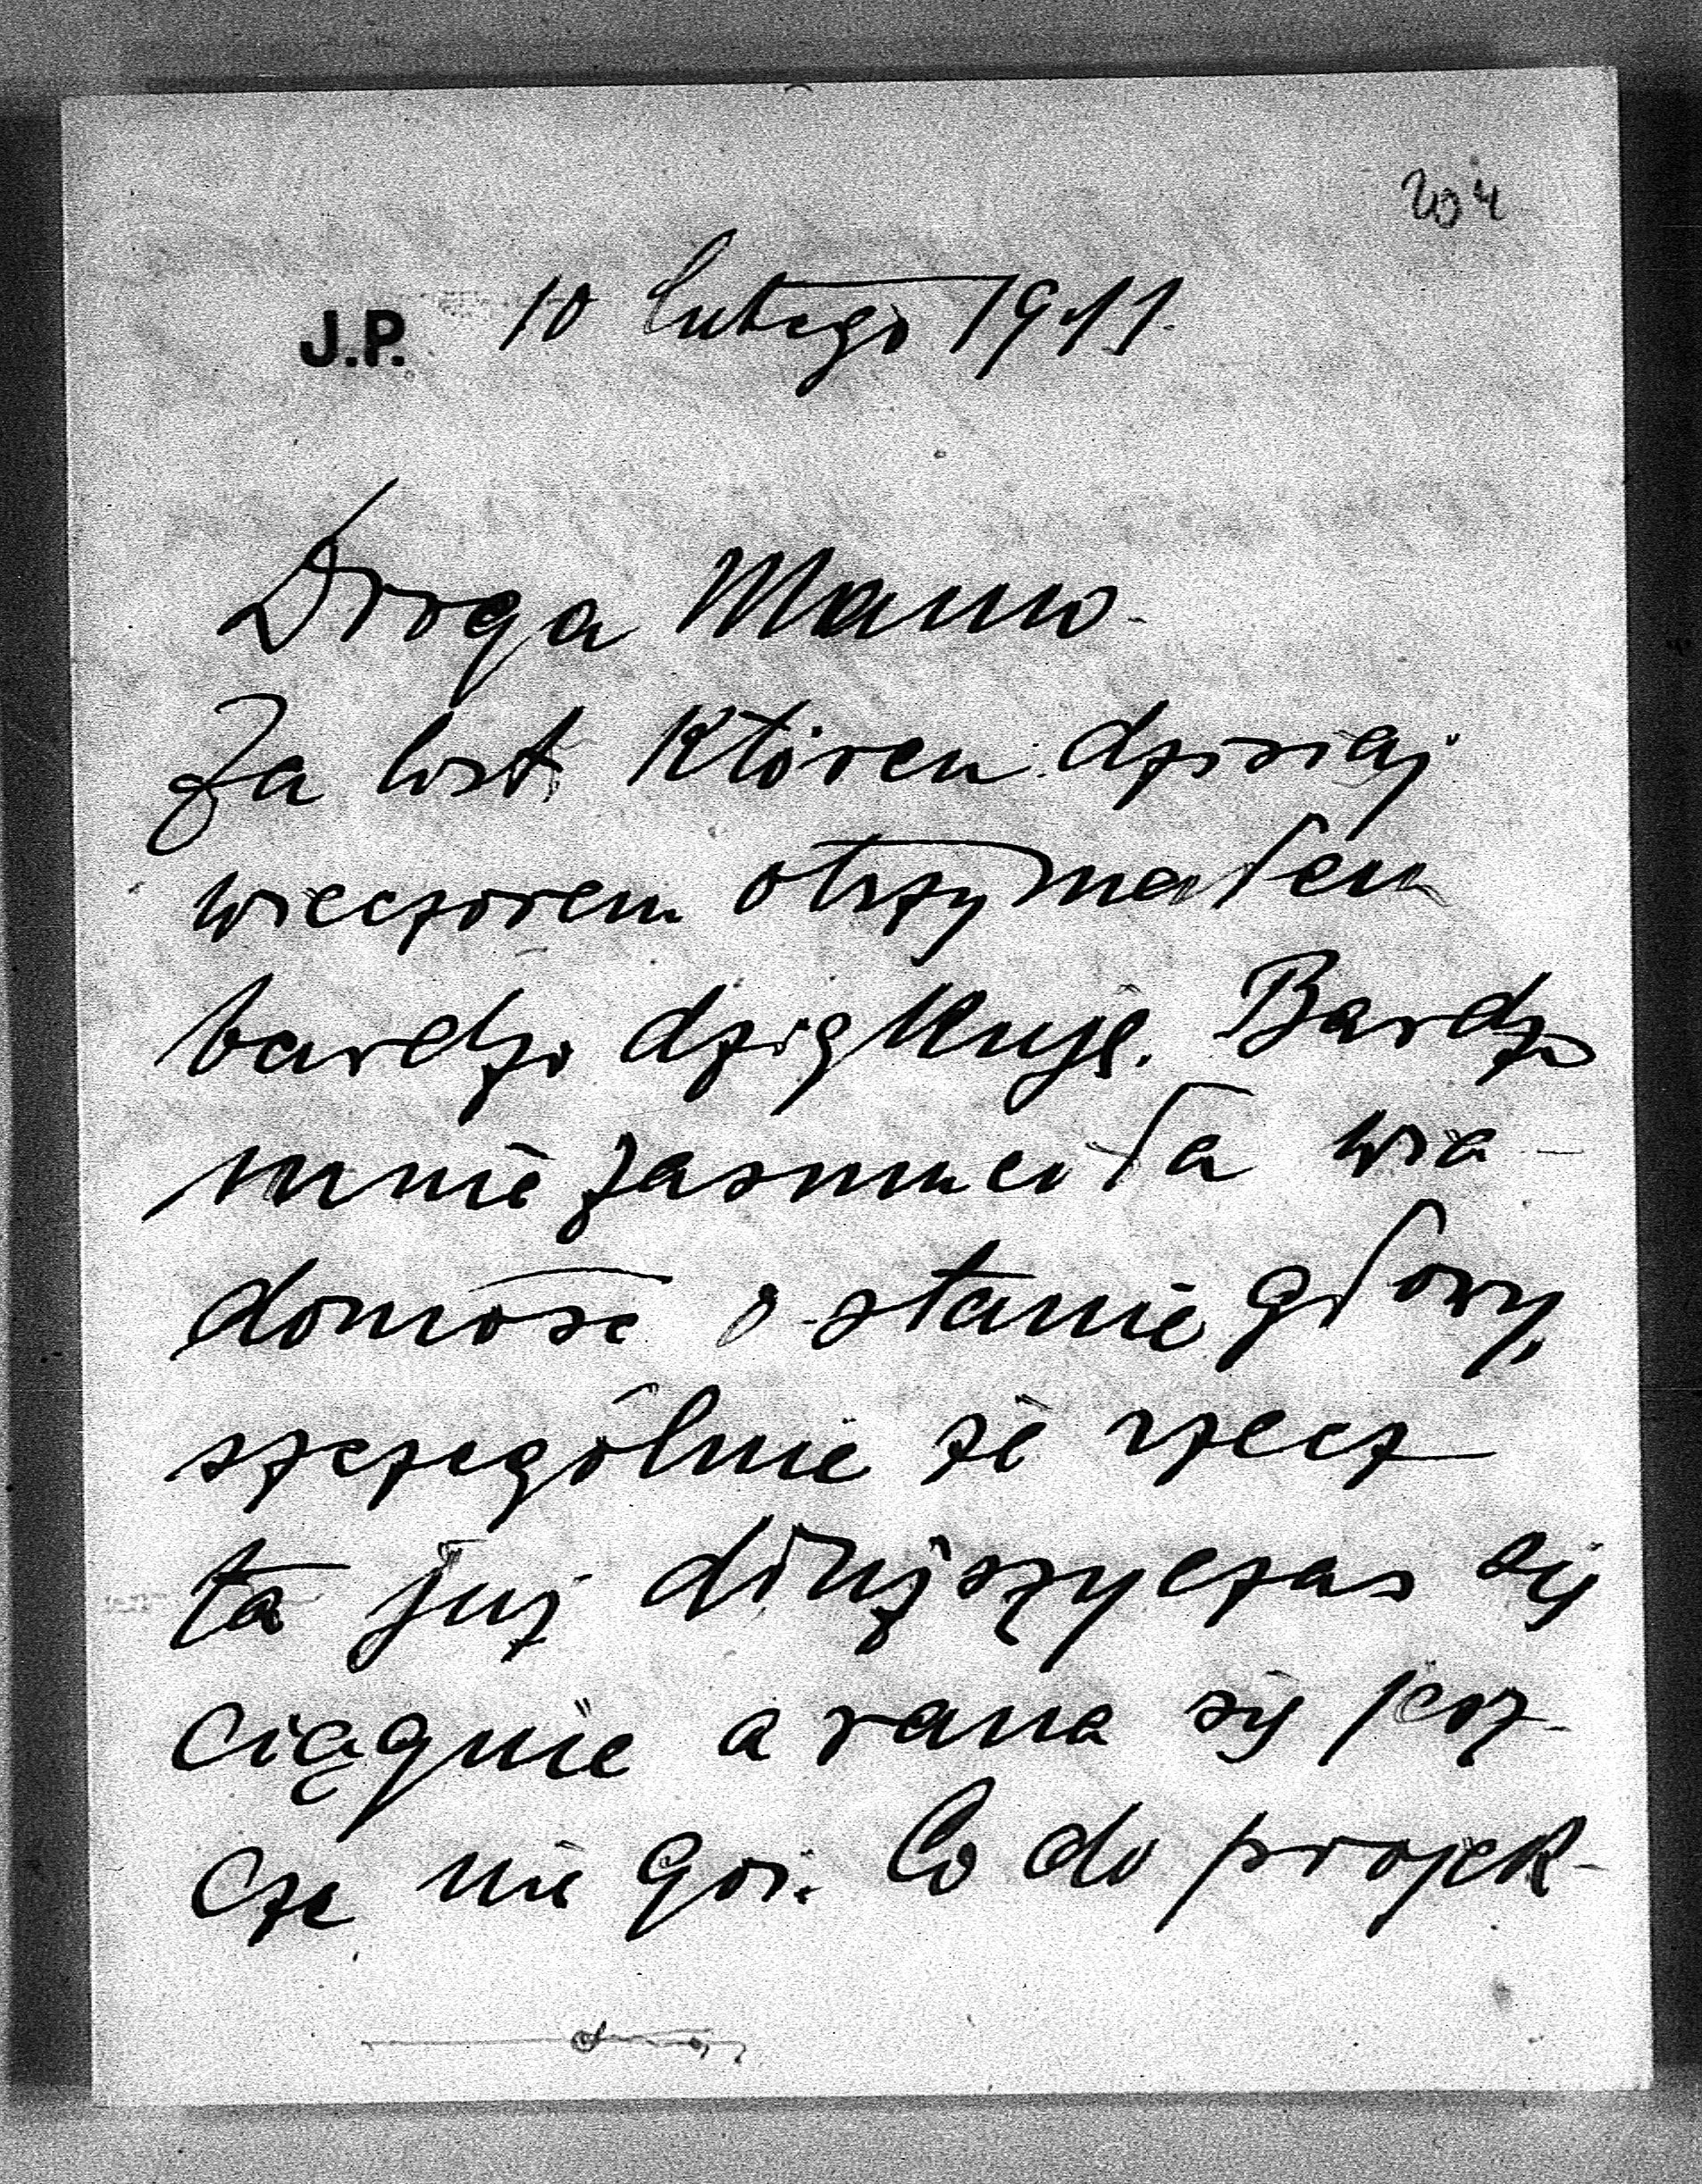 204
J.P. 10 lutego 1911.
Droga Mamo.
Za list któren dzisiaj
wieczorem otrzymałem
bardzo dziękuję. Bardzo
mnie zasmuciła wia-
domość o stanie głowy,
szczególnie że rzecz
ta już dłuższy czas się
ciągnie a rana się jesz-
cze nie goi. Co do projek-